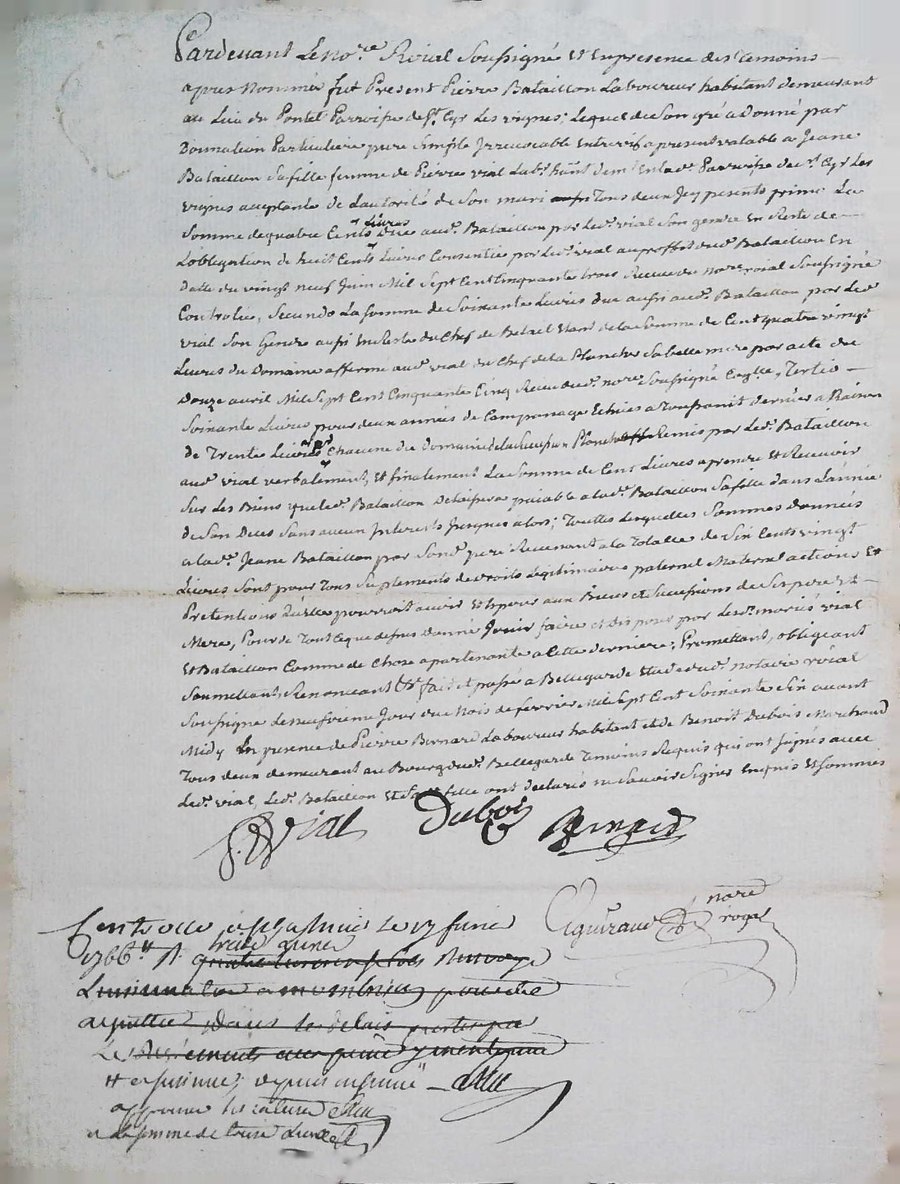 Pardevant Le no.re Roial Soussigné Et En presence des temoins
apres Nommés fut Present Pierre Bataillon Laboureur habitant demeurant
au Lieu du Pontel Parroisse de St. Cyr Les vignes; Lequel de Son gré a donné par
Donnation Particuliere pure Simple Irrevocable Entre vifs a present valable a Jeane
Bataillon Sa fille femme de Pierre vial Lab.r hant dem.t En lad.e Parroisse de St. Cyr Les
vignes acceptante de L'autorité de Son mari tous deux Icy presents primo La
Somme de quatre Cents Livres Due aud. Bataillon par Led. vial Son gendre En Reste de
L'obligation de huit Cents Livres Consentie par Led. vial au proffit dud. Bataillon En
datte du vingt neuf Juin Mil Sept Cent Cinquante trois Receue du no.re roial Soussigné
Controllée, Secundo La Somme de Soixante Livres due aussi aud. Bataillon par Led.
vial Son Gendre aussi En Reste du Chef de Betail Etant de la Somme de Cent quatre vingt
Livres du Domaine afferme aud. vial du Chef de la Planche Sa belle mere par acte du
Douze avril Mil Sept Cent Cinquante Cinq Receu dud. no.re Soussigné Tertio
Soixante Livres pour deux années de Echües a Toussaint dernier a Raison
de Trente Livres Chacune du Domaine de la Succession Planche Remis par Led. Bataillon
aud. vial verbalement, Et finalement La Somme de Cent Livres a prendre Et Recevoir
Sur Les Biens que led. Bataillon Delaissera paiable a lad. Bataillon Sa fille dans L'année
de Son Deces Sans aucun Interets Jusques alors; Touttes Lesquelles Sommes données
a lad. Jeane Bataillon par Sond. pere Revenant a la Totalle de Six Cents vingt
Livres Sont pour Tous Supplements de droits Legitimaires paternel Maternel actions Et
Pretentions qu'elle pourroit avoir Et Esperer aux Biens et Successions de Ses pere Et
Mere, Pour de Tout Ce que dessus donné Jouir faire et disposer par Lesd. mariés vial
Et Bataillon Comme de Chose apartenante a Cette derniere; Promettant, obligeant
Soumettant, Renonceant &c fait et passé a Bellegarde Etude dud. notaire roial
Soussigné Le neufvieme Jour du Mois de fevrier Mil Sept Cent Soixante Six avant
Midy En presence de Pierre Bernard Laboureur habitant et de Benoit Dubois Marchand
Tous deux demeurant au Bourg dud. Bellegarde Temoins Requis qui ont Signés avec
Led. vial, Led. Bataillon Et Sa fille ont declarés ne Sçavoir Signer Enquis Et Sommés
P. Vial Dubois Bernard
no.re
roial
Controllé a St Galmier Le 17 fevrier
1766 R treize livres
quatre livres Renvoyé
L'insinuation a pour etre
acquittée dans les delais portes par
Les
et insinué
approuvé la rature
et la somme de treize livres